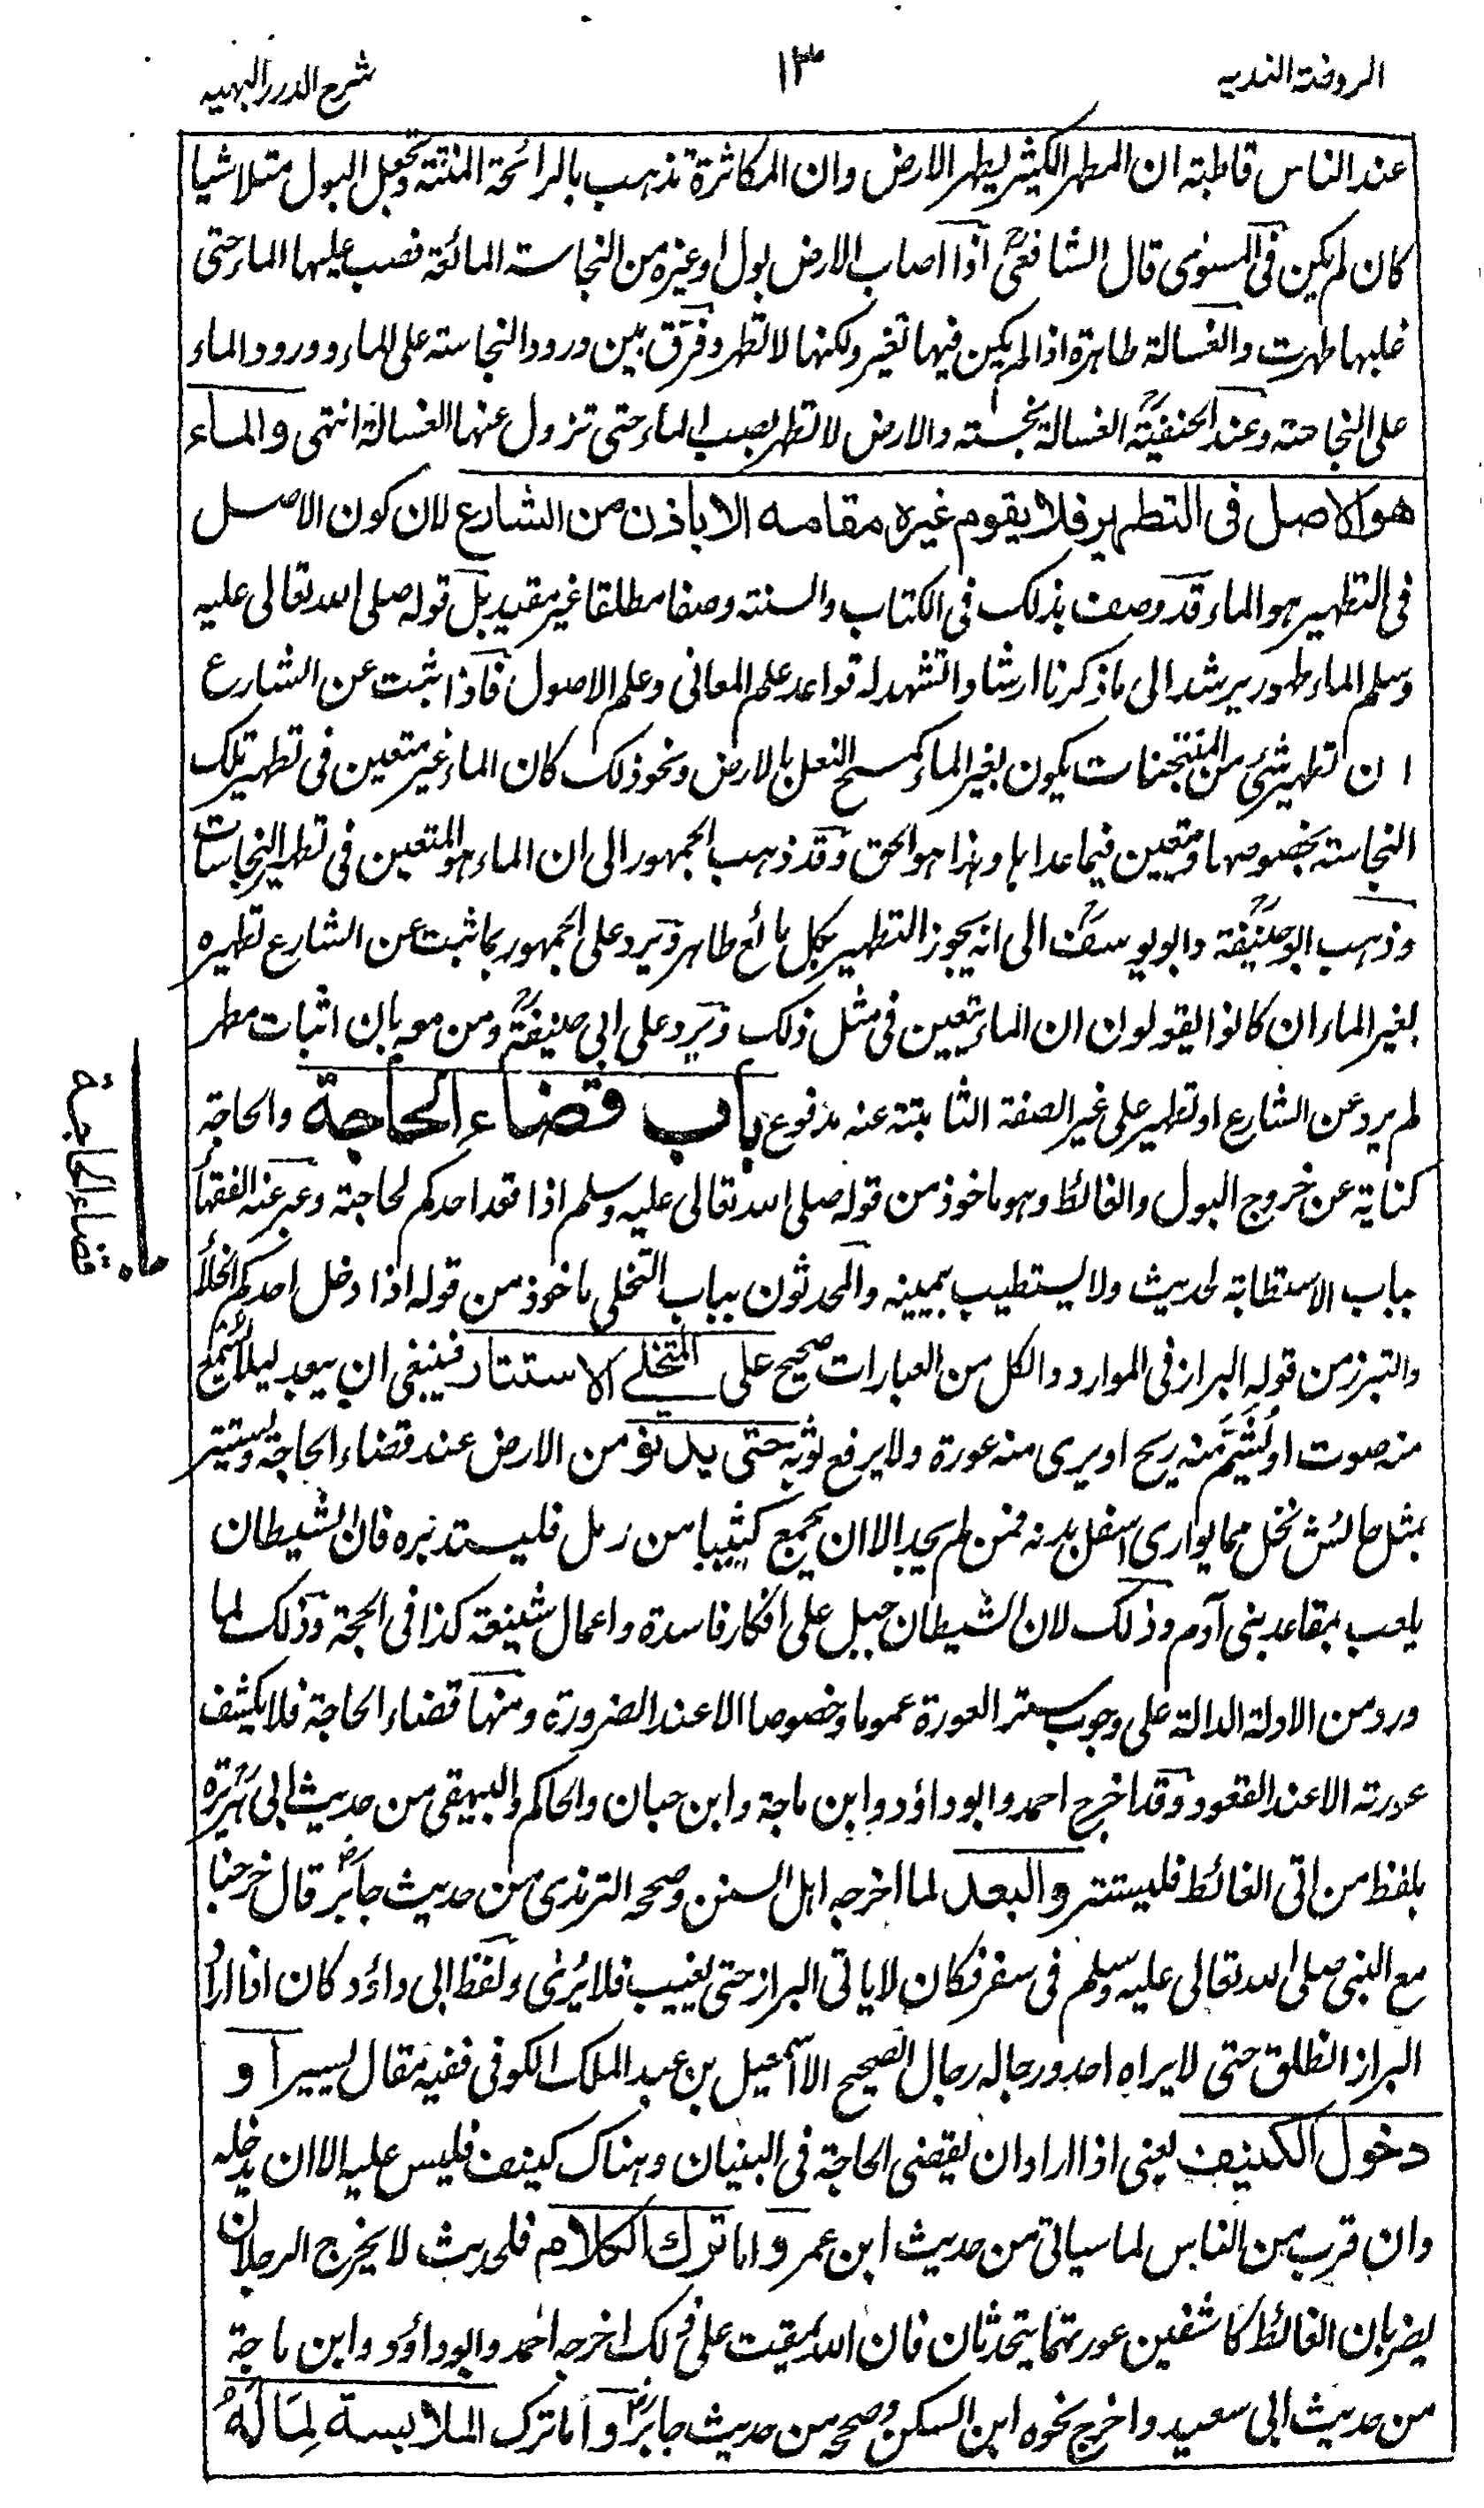 الروضة الندیه
۱۳
شرح الدرر البهیه
عند الناس قاطبة ان المطر الكثیر یطهر الارض وان المكاثرة تذهب بالرائحة المنتنة وتجعل البول متلاشیا
كان لم یكن فی المسوی قال الشافعیؒ اذا اصاب الارض بول او غیره من النجاسة المائعة فصب علیها الماء حتی
غلبها طهرت والغسالة طاهرة اذا لم یكن فیها تغیر ولكنها لا تطهر وفرق بین ورود النجاسة علی الماء وورود الماء
علی النجاسة وعند الحنفیةؒ الغسالة نجسة والارض لا تطهر بصب الماء حتی تزول عنها الغسالة انتهی والماء
هو الاصل فی التطهیر فلا یقوم غیره مقامه الا باذن من الشارع لان كون الاصل
فی التطهیر هو الماء قد وصف بذلك فی الكتاب والسنة وصفا مطلقا غیر مقید بل قوله صلی الله تعالی علیه
وسلم الماء طهور یرشد الی ما ذكرنا ارشادا تشهد له قواعد علم المعانی وعلم الاصول فاذا ثبت عن الشارع
ان تطهیر شیء من المتنجسات یكون بغیر الماء كمسح النعل بالارض ونحو ذلك كان الماء غیر متعین فی تطهیر تلك
النجاسة بخصوصها ومتعین فیما عداها وهذا هو الحق وقد ذهب الجمهور الی ان الماء هو المتعین فی تطهیر النجاسات
وذهب ابو حنیفةؒ وابو یوسفؒ الی انه یجوز التطهیر بكل مائع طاهر ویرد علی الجمهور بما ثبت عن الشارع تطهیره
بغیر الماء ان كانوا یقولون ان الماء یتعین فی مثل ذلك ویرد علی ابی حنیفةؒ ومن معه بان اثبات مطهر
لم یرد عن الشارع او تطهیر علی غیر الصفة الثابتة عنه مدفوع باب قضاء الحاجة والحاجة
كنایة عن خروج البول والغائط وهو ماخوذ من قوله صلی الله تعالی علیه وسلم اذا قعد احدكم لحاجة وعبر عنه الفقهاء
بباب الاستطابة لحدیث ولا یستطیب بیمینه والمحدثون بباب التخلی ماخوذ من قوله اذا دخل احدكم الخلاء
والتبرز من قوله البراز فی الموارد والكل من العبارات صحیح علی المتخلے الاستتار فینبغی ان یبعد لیلا یسمع
منه صوت او یشم منه ریح او یری منه عورة ولا یرفع ثوبه حتی یدنو من الارض عند قضاء الحاجة ویستتر
بمثل حائش نخل مما یواری اسفل بدنه فمن لم یجد الا ان یجمع كثیبا من رمل فلیستدبره فان الشیطان
یلعب بمقاعد بنی آدم وذلك لان الشیطان جبل علی افكار فاسدة واعمال شنیعة كذا فی الحجة وذلك لما
ورد من الادلة الدالة علی وجوب ستر العورة عموما وخصوصا الا عند الضرورة ومنها قضاء الحاجة فلا یكشف
عورته الا عند القعود وقد اخرج احمد وابو داؤد وابن ماجة وابن حبان والحاكم والبیهقی من حدیث ابی هریرة
بلفظ من اتی الغائط فلیستتر والبعد لما اخرجه اهل السنن وصححه الترمذی من حدیث جابرؓ قال خرجنا
مع النبی صلی الله تعالی علیه وسلم فی سفر فكان لا یاتی البراز حتی یغیب فلا یُرٰی ولفظ ابی داؤد كان اذا اراد
البراز انطلق حتی لا یراه احد ورجاله رجال الصحیح الا اسمٰعیل بن عبد الملك الكوفی ففیه مقال یسیر او
دخول الكنیف یعنی اذا اراد ان یقضی الحاجة فی البنیان وهناك كنیف فلیس علیه الا ان یدخله
وان قرب من الناس لما سیاتی من حدیث ابن عمر واما ترك الكلام فلحدیث لا یخرج الرجلان
یضربان الغائط كاشفین عورتهما یتحدثان فان الله یمقت علی ذلك اخرجه احمد وابو داؤد وابن ماجة
من حدیث ابی سعید واخرج نحوه ابن السكن وصححه من حدیث جابرؓ واما ترك الملابسة لِمَا لَهُ
باب قضاء الحاجة